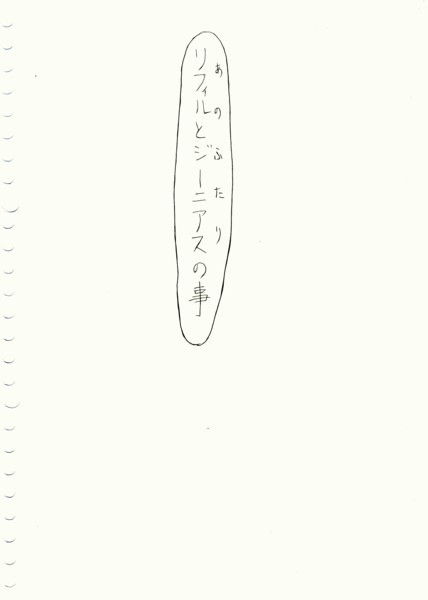 リフィルとジーニアスの事
あのふたり